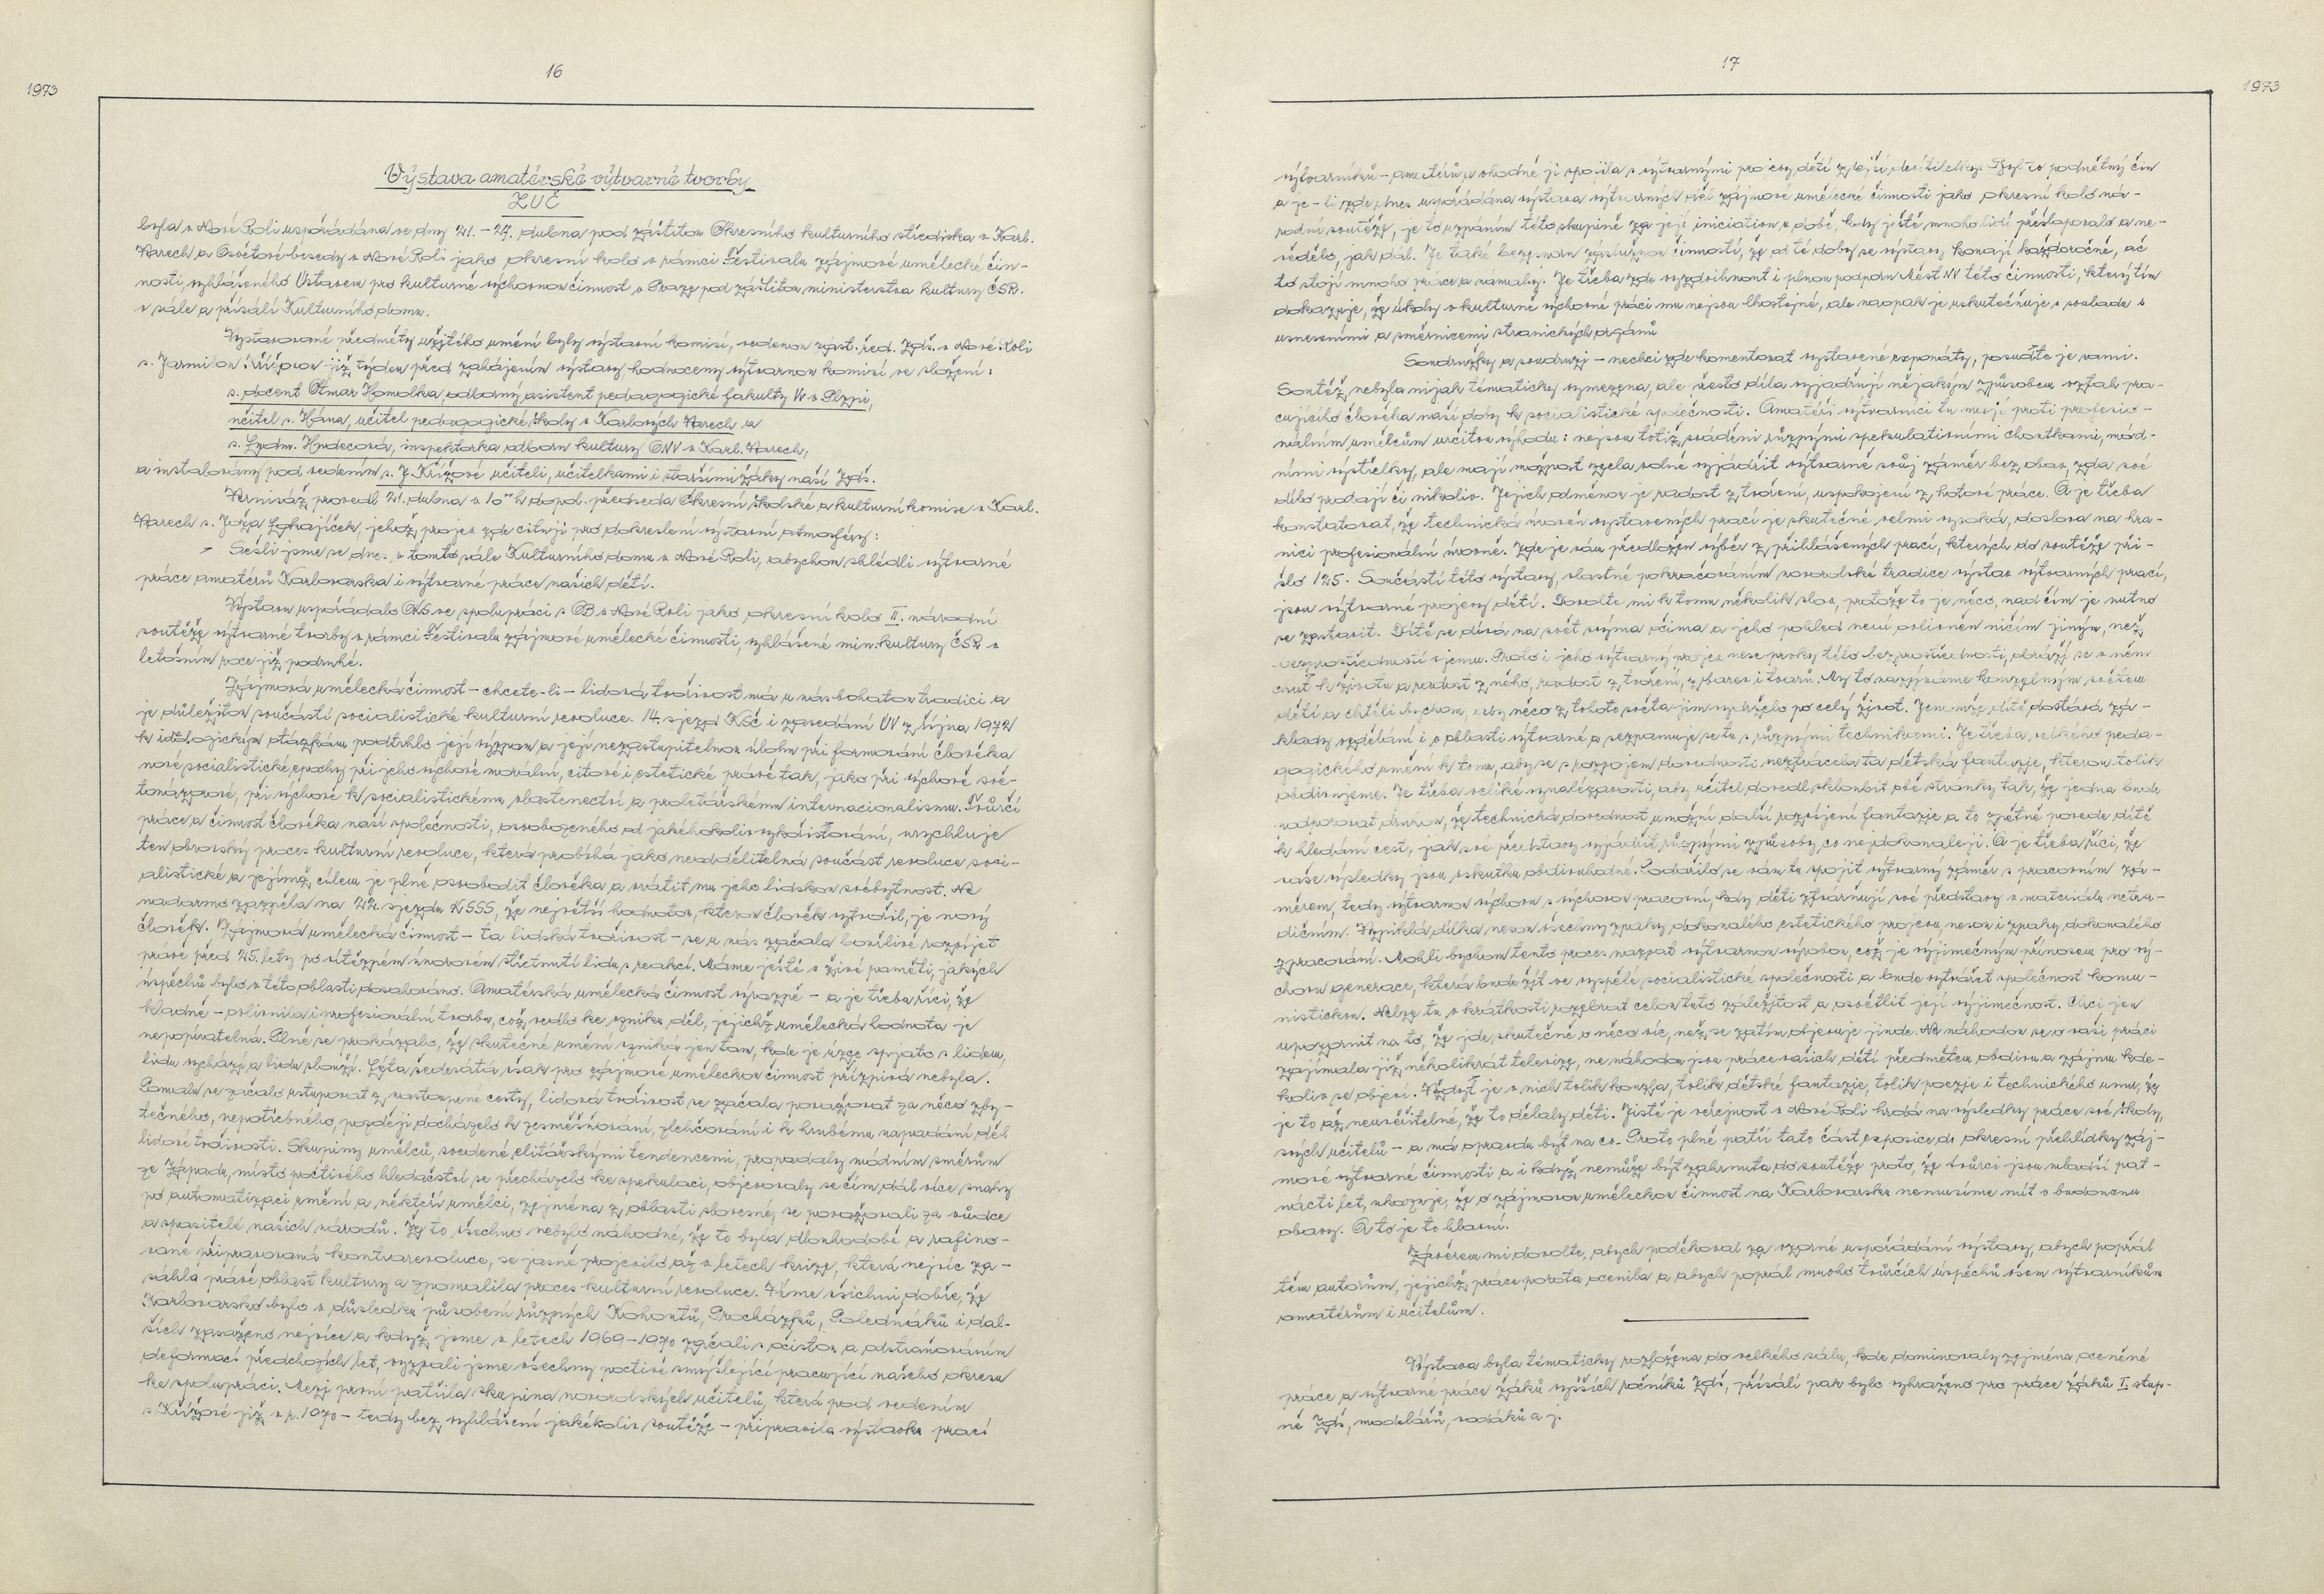 16
1973
Výstava amatérské výtvarné tvorby
ZUČ
byla v Nové Roli uspořádána ve dny 21.–27. dubna pod záštitou Okresního kulturního střediska v Karl.
Varech a Osvětové besedy v Nové Roli jako okresní kolo v rámci Festivalu zájmové umělecké čin-
nosti, vyhlášeného Ústavem pro kulturně výchovnou činnost v Praze pod záštitou ministerstva kultury ČSR.
v sále a přísálí Kulturního domu.
Vystavované předměty užitého umění byly výstavní komisí, vedenou zást. řed. Zdš. v Nové Roli
s. Jarmilou Křížovou již týden před zahájením výstavy hodnoceny výtvarnou komisí ve složení:
s. docent Otmar Homolka, odborný asistent pedagogické fakulty v Plzni,
učitel s. Hána, učitel pedagogické školy v Karlových Varech a
s. Ludm. Hudecová, inspektorka odboru kultury ONV v Karl. Varech,
a instalovány pod vedením s. J. Křížové učiteli, učitelkami i staršími žáky naší Zdš.
Vernisáž provedl 21. dubna v 10 h dopol. předseda Okresní školské a kulturní komise v Karl.
Varech s. Joža jehož projev zde cituji pro dokreslení výstavní atmosféry:
Sešli jsme se dnes v tomto sále Kulturního domu v Nové Roli, abychom shlédli výtvarné
práce amatérů Karlovarska i výtvarné práce našich dětí.
Výstavu uspořádalo OKS ve spolupráci s OB v Nové Roli jako okresní kolo II. národní
soutěže výtvarné tvorby v rámci Festivalu zájmové umělecké činnosti, vyhlášené min. kultury ČSR v
letošním roce již podruhé.
Zájmová umělecká činnost – chcete-li – lidová tvořivost má u nás bohatou tradici a
je důležitou součástí socialistické kulturní revoluce. 14. sjezd KSČ i zasedání ÚV z října 1972
k ideologickým otázkám podtrhlo její význam a její nezastupitelnou úlohu při formování člověka
nové socialistické epochy při jeho výchově morální, citové i estetické právě tak, jako při výchově svě-
tonázorové, při výchově k socialistickému vlastenectví a proletářskému internacionalismu. Tvůrčí
práce a činnost člověka naší společnosti, osvobozeného od jakéhokoliv vykořisťování, urychluje
ten obrovský proces kulturní revoluce, která probíhá jako neoddělitelná součást revoluce soci-
alistické a jejímž cílem je plně osvobodit člověka a vrátit mu jeho lidskou svébytnost. Ne
nadarmo zazněla na 22. sjezdu KSSS, že největší hodnotou, kterou člověk vytvořil, je nový
člověk. Zájmová umělecká činnost – ta lidská tvořivost – se u nás začala horlivě rozvíjet
právě před 25. lety po vítězném únorovém střetnutí lidu s reakcí. Máme ještě v živé paměti, jakých
úspěchů bylo v této oblasti dosahováno. Amatérská umělecká činnost výrazně – a je třeba říci, že
kladně – ovlivnila i profesionální tvorbu, což vedlo ke vzniku děl, jejichž umělecká hodnota je
nepopíratelná. Plně se prokázalo, že skutečné umění vzniká jen tam, kde je úzce spjato s lidem,
lidu vychází a lidu slouží. Léta šedesátá však pro zájmové uměleckou činnost příznivá nebyla.
Pomalu se začalo ustupovat z nastoupené cesty, lidová tvořivost se začala považovat za něco zby-
tečného, nepotřebného, později docházelo k zesměšňování, zlehčování i k hrubému napadání děl
lidové tvořivosti. Skupiny umělců, svedené elitářskými tendencemi, propadaly módním směrům
ze Západu, místo poctivého hledačství se přecházelo ke spekulaci, objevovaly se čím dál více snahy
po automatizaci umění a někteří umělci, zejména z oblasti slovesné, se považovali za vůdce
a spasitele našich národů. Že to všechno nebylo náhodné, že to byla dlouhodobě a rafino-
vaně připravovaná kontrarevoluce, se jasně projevilo až v letech krize, která nejvíc za-
sáhla právě oblast kultury a zpomalila proces kulturní revoluce. Víme všichni dobře, že
Karlovarsko bylo v důsledku působení různých Kohoutů, Procházků, Poledňáků i dal-
ších zasaženo nejvíce a když jsme v letech 1969–1970 začali s očistou a odstraňováním
deformací předchozích let, vyzvali jsme všechny poctivě smýšlející pracující našeho okresu
ke spolupráci. Mezi první patřila skupina novorolských učitelů, která pod vedením
s. Křížové již v r. 1970 – tedy bez vyhlášení jakékoliv soutěže – připravila výstavku prací
17
1973
výtvarníků – amatérů a vhodně ji spojila s výtvarnými projevy dětí Byl to podnětný čin
a je-li zde dnes uspořádána výstava výtvarných děl zájmové umělecké činnosti jako okresní kolo ná-
rodní soutěže, je to uznáním této skupině za její iniciativu v době, kdy ještě mnoho lidí přešlapovalo a ne-
vědělo, jak dál. Je také bezesporu záslužnou činností, že od té doby se výstavy konají každoročně, ač
to stojí mnoho práce a námahy. Je třeba zde vyzdvihnout i plnou podporu MěstNV této činnosti, který tím
dokazuje, že úkoly v kulturně výchovné práci mu nejsou lhostejné, ale naopak je uskutečňuje v souladu s
usneseními a směrnicemi stranických orgánů
Soudružky a soudruzi – nechci zde komentovat vystavené exponáty, posuďte je sami.
Soutěž nebyla nijak tématicky vymezena, ale přesto díla vyjadřují nějakým způsobem vztah pra-
cujícího člověka naší doby k socialistické společnosti. Amatéři výtvarníci tu mají proti profesio-
nálním umělcům určitou výhodu: nejsou totiž sváděni různými spekulativními choutkami, mód-
ními výstřelky, ale mají možnost zcela volně vyjádřit výtvarně svůj záměr bez obav, zda své
dílo prodají či nikoliv. Jejich odměnou je radost z tvoření, uspokojení z hotové práce. A je třeba
konstatovat, že technická úroveň vystavených prací je skutečně velmi vysoká, doslova na hra-
nici profesionální úrovně. Zde je vám předložen výběr z přihlášených prací, kterých do soutěže při-
šlo 125. Součástí této výstavy, vlastně pokračováním novorolské tradice výstav výtvarných prací,
jsou výtvarné projevy dětí. Dovolte mi k tomu několik slov, protože to je něco, nad čím je nutno
se zastavit. Dítě se dívá na svět svýma očima a jeho pohled není ovlivněn ničím jiným, než
bezprostředností vjemu. Proto i jeho výtvarný projev nese prvky této bezprostřednosti, obráží se v něm
chuť k životu a radost z něho, radost z tvoření, z barev i tvarů. My to nazýváme kouzelným světem
dětí a chtěli bychom, aby něco z tohoto světa jim vydrželo po celý život. Jenomže dítě dostává zá-
klady vzdělání i v oblasti výtvarné a seznamuje se tu s různými technikami. Je třeba velkého peda-
gogického umění k tomu, aby se s rozvojem dovedností neztrácela ta dětská fantazie, kterou tolik
obdivujeme. Je třeba veliké vynalézavosti, aby učitel dovedl skloubit obě stránky tak, že jedna bude
podporovat druhou, že technická dovednost umožní další rozvíjení fantazie a to zpětně povede dítě
k hledání cest, jak své představy vyjádřit různými způsoby co nejdokonaleji. A je třeba říci, že
vaše výsledky jsou vskutku obdivuhodné. Podařilo se vám tu spojit výtvarný záměr s pracovním zá-
měrem, tedy výtvarnou výchovu s výchovou pracovní, kdy děti ztvárňují své představy v materiálu netra-
dičním. Vzniklá dílka nesou všechny znaky dokonalého estetického projevu, nesou i znaky dokonalého
zpracování. Mohli bychom tento proces nazvat výtvarnou výrobou, což je výjimečným přínosem pro vý-
chovu generace, která bude žít ve vyspělé socialistické společnosti a bude vytvářet společnost komu-
nistickou. Nelze tu v krátkosti rozebrat celou tuto záležitost a osvětlit její výjimečnost. Chci jen
upozornit na to, že jde skutečně o něco víc, než se zatím objevuje jinde. Ne náhodou se o vaši práci
zajímala již několikrát televize, ne náhodou jsou práce vašich dětí předmětem obdivu a zájmu kde-
koliv se objeví. Vždyť je v nich tolik kouzla, tolik dětské fantazie, tolik poezie i technického umu, že
je to až neuvěřitelné, že to dělaly děti. Jistě je veřejnost v Nové Roli hrdá na výsledky práce své školy,
svých učitelů – a má opravdu být na co. Proto plně patří tato část exposice do okresní přehlídky záj-
mové výtvarné činnosti a i když nemůže být zahrnuta do soutěže proto, že tvůrci jsou mladší pat-
nácti let, ukazuje, že o zájmovou uměleckou činnost na Karlovarsku nemusíme mít v budoucnu
obavy. A to je to hlavní.
Závěrem mi dovolte, abych poděkoval za vzorné uspořádání výstavy, abych popřál
těm autorům, jejichž práce porota ocenila a abych popřál mnoho tvůrčích úspěchů všem výtvarníkům
amatérům i učitelům.
Výstava byla tématicky rozložena do velkého sálu, kde dominovaly zejména oceněné
práce a výtvarné práce žáků vyšších ročníků Zdš, přísálí pak bylo vyhraženo pro práce žáků I. stup-
ně Zdš, modelářů, a j.